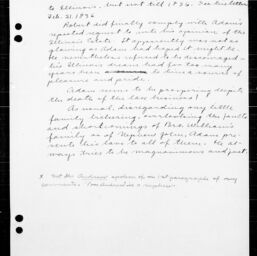 to Illinois. but not till 1836. See his letter
Feb. 21, 1836
Robert did finally comply with Adam's
repeated request to write his opinion of the
Illinois Estate. It apparently was not as
glowing as Adam had hoped it might be.
He nonetheless refused to be discouraged
his Illinois dream had for too many
years been a source of
pleasure and pride.
Adam seems to be prospering despite
the death of the law business!
As usual, disregarding any little
family bickering, overlooking the faults
and shortcomings of Bro. William's
family as of Nephew John, Adam pre-
sents his love to all of them. He al-
ways tries to be magnanimous and just.
* Not the Andrew spoken of in 1st paragraph of my
comments. This Andrew is a nephew.